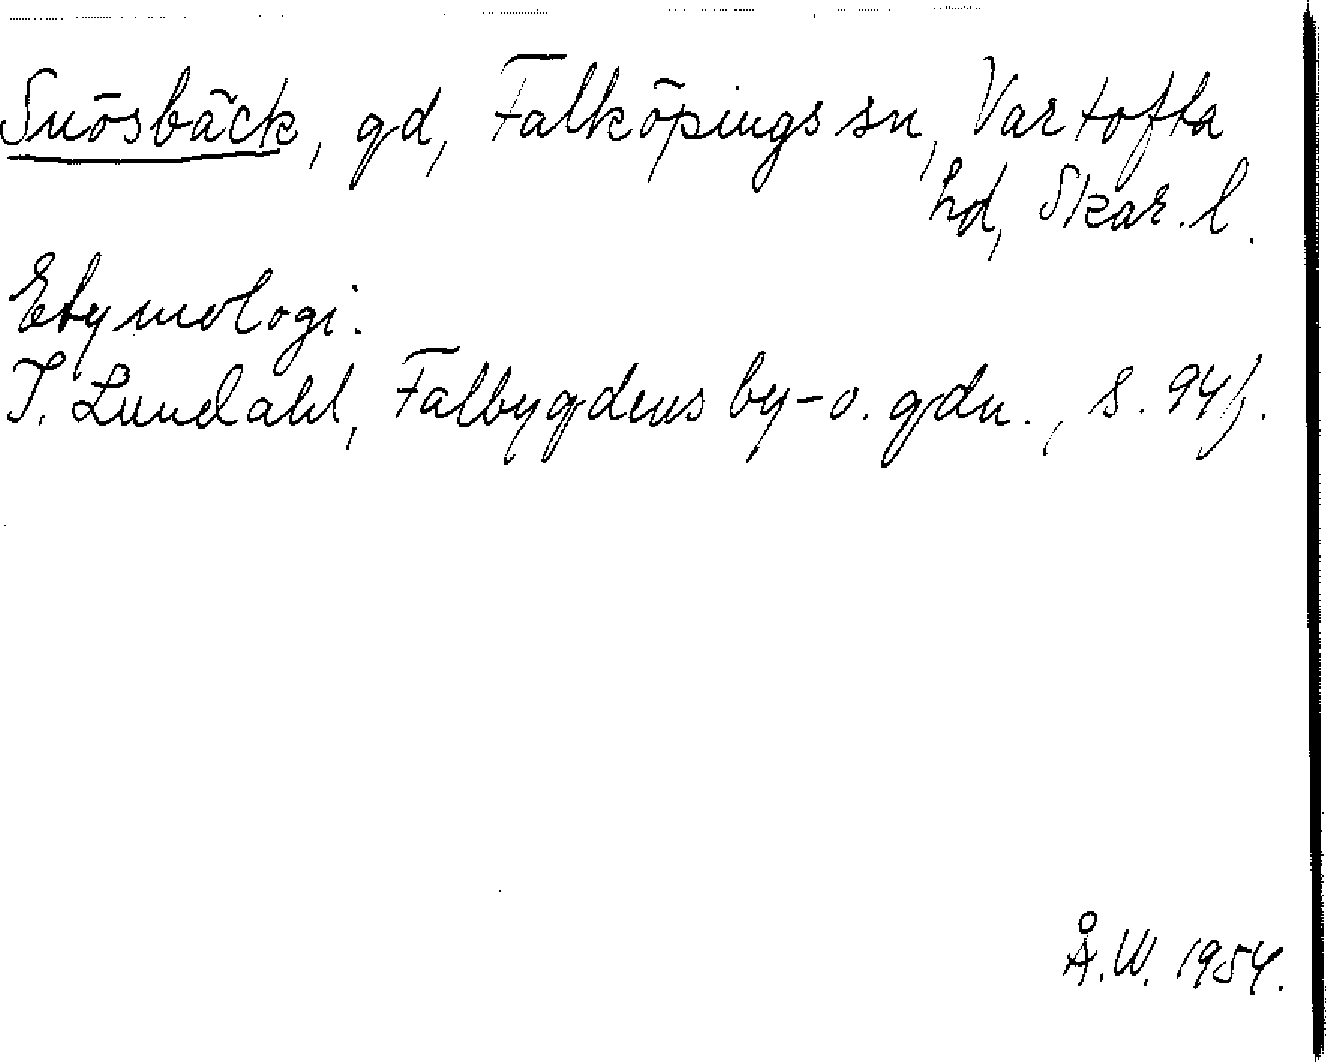 Snösbäck, gd, Falköpings sn, Vartofta
hd, Skar. l.
Etymologi:
I. Lundahl, Falbygdens by- o. gdn., s. 94f.
Å.W. 1954.